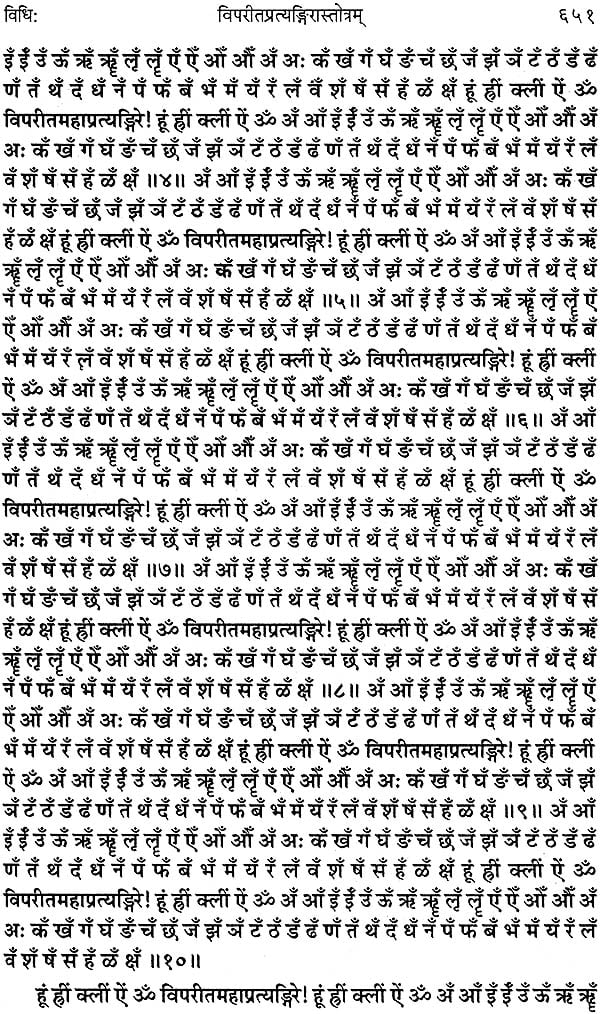 विधि: विपरीतप्रत्यङ्गिरास्तोत्रम् ६५१
इँ ईँ उँ ऊँ ऋँ ॠँ लृँ लॄँ एँ ऐँ ओँ औँ अँ अः कँ खँ गँ घँ ङँ चँ छँ जँ झँ ञँ टँ ठँ डँ ढँ
णँ तँ थँ दँ धँ नँ पँ फँ बँ भँ मँ यँ रँ लँ वँ शँ षँ सँ हँ ळँ क्षँ हूं ह्रीं क्लीं ऐं ॐ
विपरीतमहाप्रत्यङ्गिरे! हूं ह्रीं क्लीं ऐं ॐ अँ आँ इँ ईँ उँ ऊँ ऋँ ॠँ लृँ लॄँ एँ ऐँ ओँ औँ अँ
अः कँ खँ गँ घँ ङँ चँ छँ जँ झँ ञँ टँ ठँ डँ ढँ णँ तँ थँ दँ धँ नँ पँ फँ बँ भँ मँ यँ रँ लँ
वँ शँ षँ सँ हँ ळँ क्षँ ॥४॥ अँ आँ इँ ईँ उँ ऊँ ऋँ ॠँ लृँ लॄँ एँ ऐँ ओँ औँ अँ अः कँ खँ
गँ घँ ङँ चँ छँ जँ झँ ञँ टँ ठँ डँ ढँ णँ तँ थँ दँ धँ नँ पँ फँ बँ भँ मँ यँ रँ लँ वँ शँ षँ सँ
हँ ळँ क्षँ हूं ह्रीं क्लीं ऐं ॐ विपरीतमहाप्रत्यङ्गिरे! हूं ह्रीं क्लीं ऐं ॐ अँ आँ इँ ईँ उँ ऊँ ऋँ
ॠँ लृँ लॄँ एँ ऐँ ओँ औँ अँ अः कँ खँ गँ घँ ङँ चँ छँ जँ झँ ञँ टँ ठँ डँ ढँ णँ तँ थँ दँ धँ
नँ पँ फँ बँ भँ मँ यँ रँ लँ वँ शँ षँ सँ हँ ळँ क्षँ ॥५॥ अँ आँ इँ ईँ उँ ऊँ ऋँ ॠँ लृँ लॄँ एँ
ऐँ ओँ औँ अँ अः कँ खँ गँ घँ ङँ चँ छँ जँ झँ ञँ टँ ठँ डँ ढँ णँ तँ थँ दँ धँ नँ पँ फँ बँ
भँ मँ यँ रँ लँ वँ शँ षँ सँ हँ ळँ क्षँ हूं ह्रीं क्लीं ऐं ॐ विपरीतमहाप्रत्यङ्गिरे! हूं ह्रीं क्लीं
ऐं ॐ अँ आँ इँ ईँ उँ ऊँ ऋँ ॠँ लृँ लॄँ एँ ऐँ ओँ औँ अँ अः कँ खँ गँ घँ ङँ चँ छँ जँ झँ
ञँ टँ ठँ डँ ढँ णँ तँ थँ दँ धँ नँ पँ फँ बँ भँ मँ यँ रँ लँ वँ शँ षँ सँ हँ ळँ क्षँ ॥६॥ अँ आँ
इँ ईँ उँ ऊँ ऋँ ॠँ लृँ लॄँ एँ ऐँ ओँ औँ अँ अः कँ खँ गँ घँ ङँ चँ छँ जँ झँ ञँ टँ ठँ डँ ढँ
णँ तँ थँ दँ धँ नँ पँ फँ बँ भँ मँ यँ रँ लँ वँ शँ षँ सँ हँ ळँ क्षँ हूं ह्रीं क्लीं ऐं ॐ
विपरीतमहाप्रत्यङ्गिरे! हूं ह्रीं क्लीं ऐं ॐ अँ आँ इँ ईँ उँ ऊँ ऋँ ॠँ लृँ लॄँ एँ ऐँ ओँ औँ अँ
अः कँ खँ गँ घँ ङँ चँ छँ जँ झँ ञँ टँ ठँ डँ ढँ णँ तँ थँ दँ धँ नँ पँ फँ बँ भँ मँ यँ रँ लँ
वँ शँ षँ सँ हँ ळँ क्षँ ॥७॥ अँ आँ इँ ईँ उँ ऊँ ऋँ ॠँ लृँ लॄँ एँ ऐँ ओँ औँ अँ अः कँ खँ
गँ घँ ङँ चँ छँ जँ झँ ञँ टँ ठँ डँ ढँ णँ तँ थँ दँ धँ नँ पँ फँ बँ भँ मँ यँ रँ लँ वँ शँ षँ सँ
हँ ळँ क्षँ हूं ह्रीं क्लीं ऐं ॐ विपरीतमहाप्रत्यङ्गिरे! हूं ह्रीं क्लीं ऐं ॐ अँ आँ इँ ईँ उँ ऊँ ऋँ
ॠँ लृँ लॄँ एँ ऐँ ओँ औँ अँ अः कँ खँ गँ घँ ङँ चँ छँ जँ झँ ञँ टँ ठँ डँ ढँ णँ तँ थँ दँ धँ
नँ पँ फँ बँ भँ मँ यँ रँ लँ वँ शँ षँ सँ हँ ळँ क्षँ ॥८॥ अँ आँ इँ ईँ उँ ऊँ ऋँ ॠँ लृँ लॄँ एँ
ऐँ ओँ औँ अँ अः कँ खँ गँ घँ ङँ चँ छँ जँ झँ ञँ टँ ठँ डँ ढँ णँ तँ थँ दँ धँ नँ पँ फँ बँ
भँ मँ यँ रँ लँ वँ शँ षँ सँ हँ ळँ क्षँ हूं ह्रीं क्लीं ऐं ॐ विपरीतमहाप्रत्यङ्गिरे! हूं ह्रीं क्लीं
ऐं ॐ अँ आँ इँ ईँ उँ ऊँ ऋँ ॠँ लृँ लॄँ एँ ऐँ ओँ औँ अँ अः कँ खँ गँ घँ ङँ चँ छँ जँ झँ
ञँ टँ ठँ डँ ढँ णँ तँ थँ दँ धँ नँ पँ फँ बँ भँ मँ यँ रँ लँ वँ शँ षँ सँ हँ ळँ क्षँ ॥९॥ अँ आँ
इँ ईँ उँ ऊँ ऋँ ॠँ लृँ लॄँ एँ ऐँ ओँ औँ अँ अः कँ खँ गँ घँ ङँ चँ छँ जँ झँ ञँ टँ ठँ डँ ढँ
णँ तँ थँ दँ धँ नँ पँ फँ बँ भँ मँ यँ रँ लँ वँ शँ षँ सँ हँ ळँ क्षँ हूं ह्रीं क्लीं ऐं ॐ
विपरीतमहाप्रत्यङ्गिरे! हूं ह्रीं क्लीं ऐं ॐ अँ आँ इँ ईँ उँ ऊँ ऋँ ॠँ लृँ लॄँ एँ ऐँ ओँ औँ अँ
अः कँ खँ गँ घँ ङँ चँ छँ जँ झँ ञँ टँ ठँ डँ ढँ णँ तँ थँ दँ धँ नँ पँ फँ बँ भँ मँ यँ रँ लँ
वँ शँ षँ सँ हँ ळँ क्षँ ॥१०॥
हूं ह्रीं क्लीं ऐं ॐ विपरीतमहाप्रत्यङ्गिरे! हूं ह्रीं क्लीं ऐं ॐ अँ आँ इँ ईँ उँ ऊँ ऋँ ॠँ